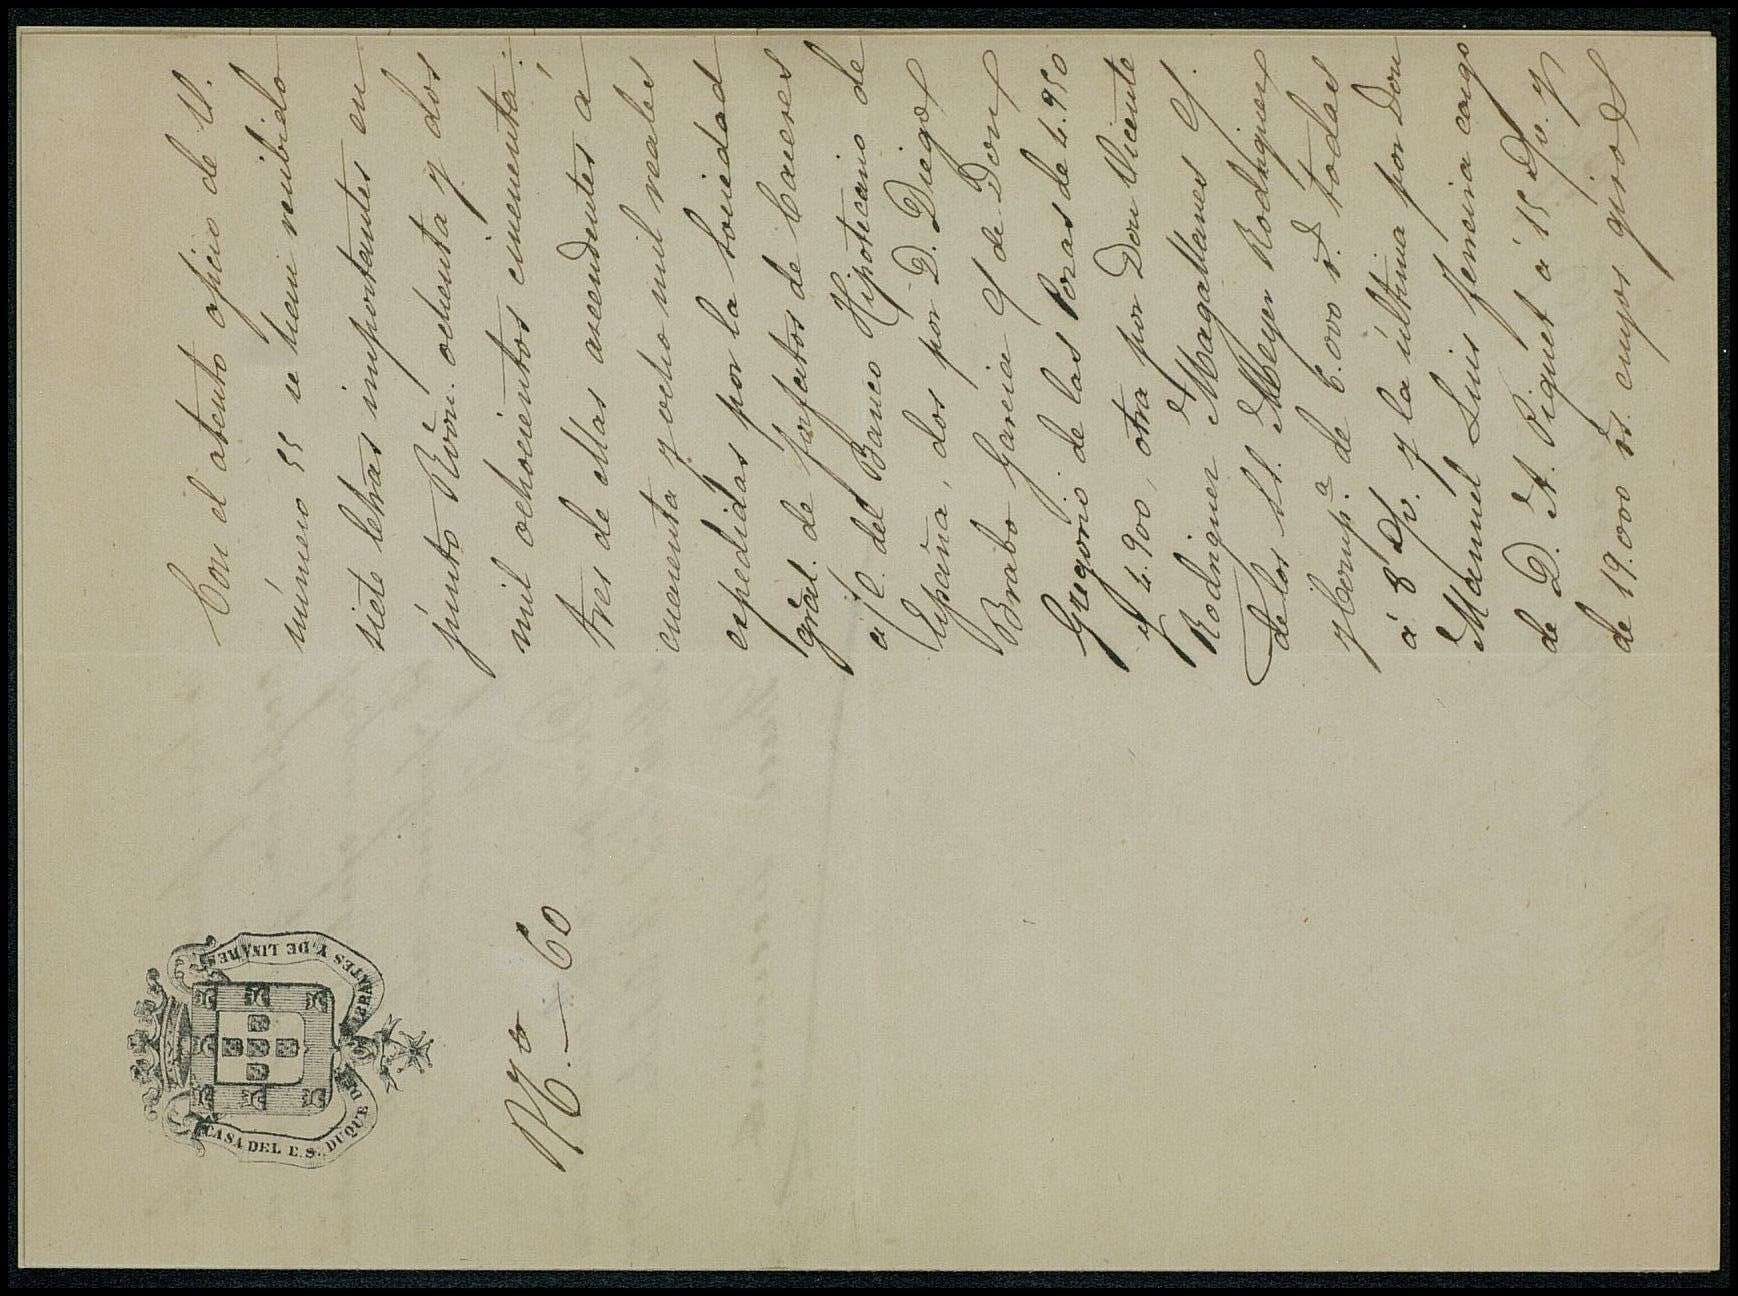 CASA DEL E. S. DUQUE DE ABRANTES Y DE LINARES
Rº. 60
Con el atento oficio de U.
número 55 se hein reribido
siete letras importantes en
junto Rvon. ochenta y dos
mil ochocientos cincuenta:
tres de ellas ascendentes á
cuarenta y ocho mil reales
expedidas por la Sociedad
gral. de fosfatos de Caceres
a/c. del Banco Hipotecario de
España, dos por D. Diego
Brabo Garcia y de Don
Gregorio de las Poras de 4.950
y 4.900, otra por Don Vicente
Rodriguez Magallanes y.
de los SS. Meyer Rodriguez
y Comp.ª de 6.000 r.s todas
á 8 d/v. y la última por Don
Manuel Luis ferreira cargo
de D. A. Piquet á 15 d/v. y
de 19.000 rs. cuyos giros